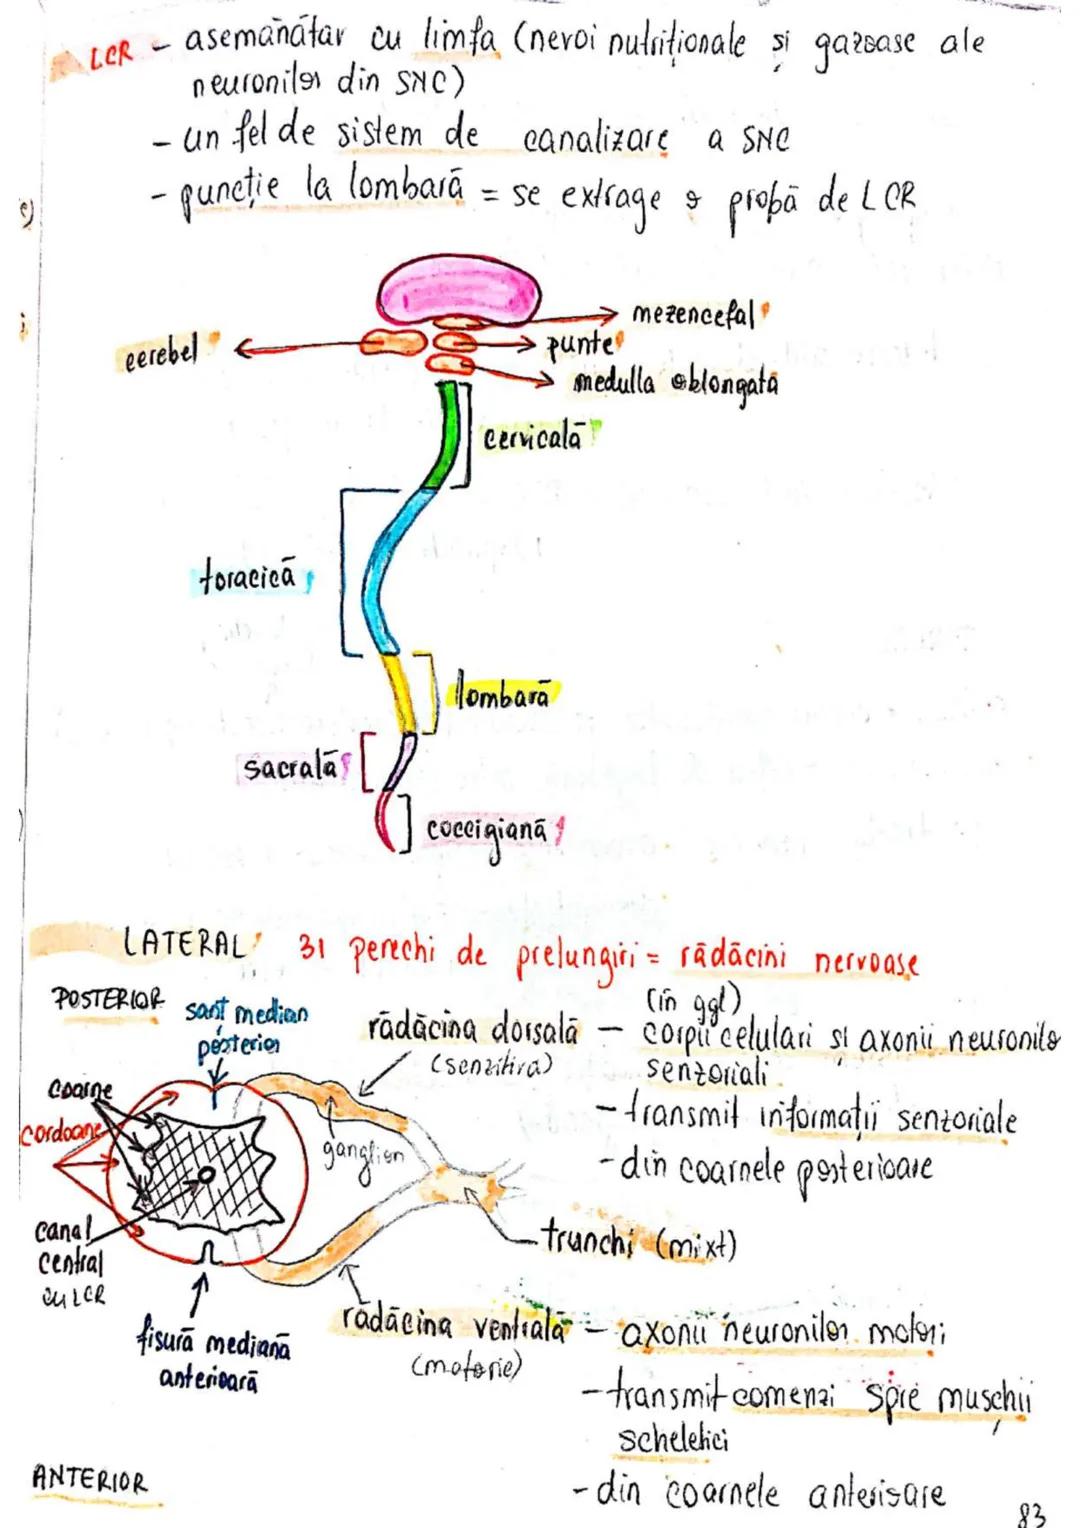 LCR - asemănătar cu limfa (nevoi nutriționale și gazoase ale
neuronilor din SNC)
- un fel de sistem de canalizare a SNC
- puncție la lombară = se extrage o probă de LCR
mezencefal
cerebel
punte
medulla oblongată
cervicală
toracică
lombară
sacrală
coccigiană
LATERAL 31 perechi de prelungiri = rădăcini nervoase
POSTERIOR
sanț median
posterior
rădăcina dorsală
(senzitivă)
(în ggl)
- corpii celulari si axonii neuronilo
senzoriali
- transmit informații senzoriale
- din coarnele posterioare
coarne
cordoane
ganglion
canal
central
cu LCR
trunchi (mixt)
fisură mediană
anterioară
rădăcina ventrală
(motorie)
- axonii neuronilor motori
- transmit comenzi spre muschii
scheletici
- din coarnele anterioare
ANTERIOR
83